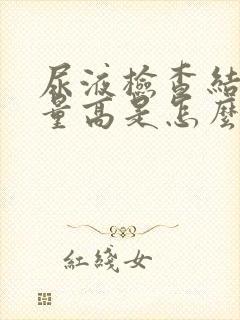 尿液檢查結
量高是怎麼
紅綫女